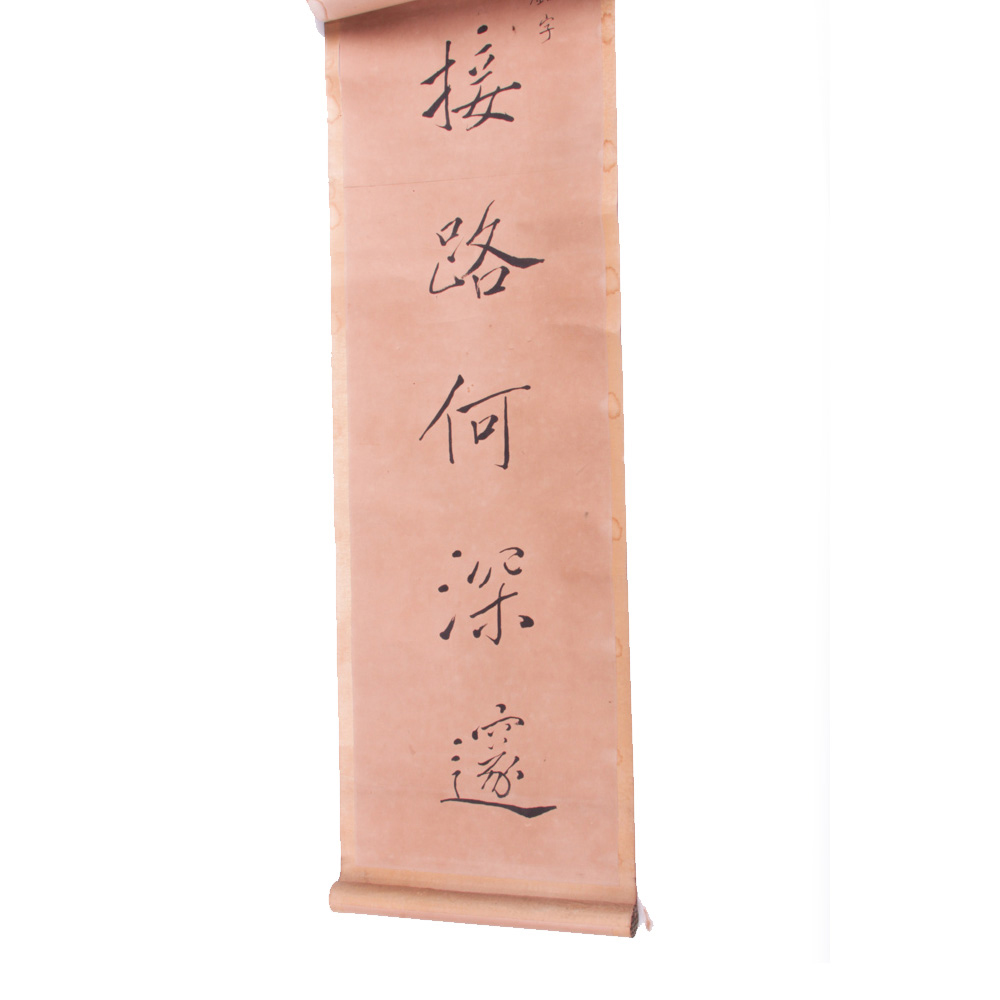 字
接路何深邃